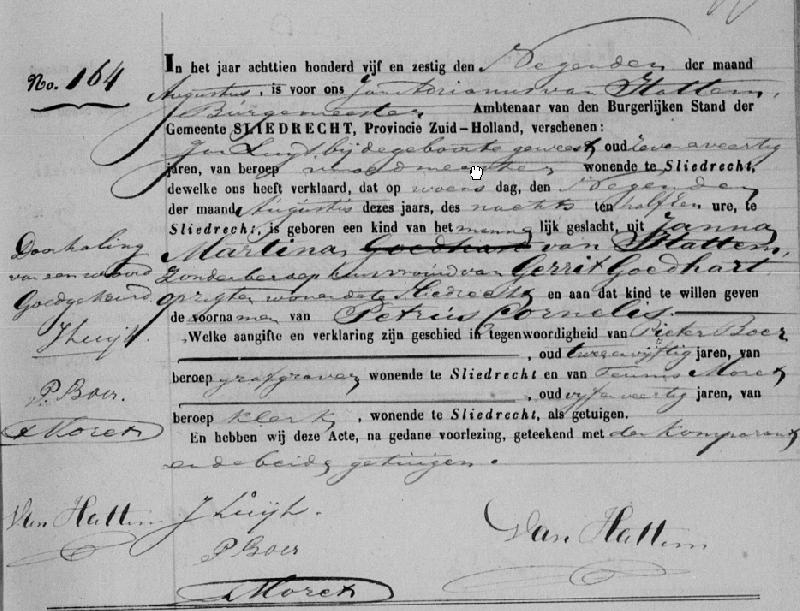 No. 164
In het jaar achttien honderd vijf en zestig den Negenden der maand
Augustus, is voor ons Jan Adrianus van Hattem,
Burgemeester Ambtenaar van den Burgerlijken Stand der
Gemeente SLIEDRECHT, Provincie Zuid-Holland, verschenen:
Jan Luijt bij de geboorte geweest, oud zeven en veertig
jaren, van beroep wonende te Sliedrecht,
dewelke ons heeft verklaard, dat op woensdag, den Negenden
der maand Augustus dezes jaars, des nachts ten half een ure, te
Sliedrecht, is geboren een kind van het mannelijk geslacht, uit Janna
Martina Goedhart van Hattem,
zonder beroep huisvrouw van Gerrit Goedhart
opzigter wonende te Sliedrecht en aan dat kind te willen geven
de voornamen van Petrus Cornelis.
Welke aangifte en verklaring zijn geschied in tegenwoordigheid van Pieter Boer
, oud twee en vijftig jaren, van
beroep grafgraver wonende te Sliedrecht en van Teunis Moret
, oud vijf en veertig jaren, van
beroep klerk, wonende te Sliedrecht, als getuigen.
En hebben wij deze Acte, na gedane voorlezing, geteekend met den komparant
en de beide getuigen.
Doorhaling
van een woord
Goedgekeurd.
J Luijt.
P. Boer.
Moret
Van Hattem
J Luijt.
P Boer
Moret
Van Hattem